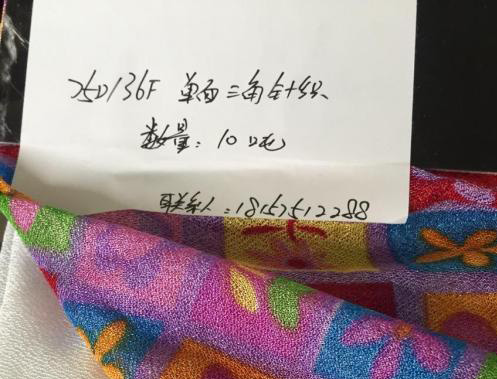 75D/36F 单面三角针织
数量: 10吨
联系人: 18157512288